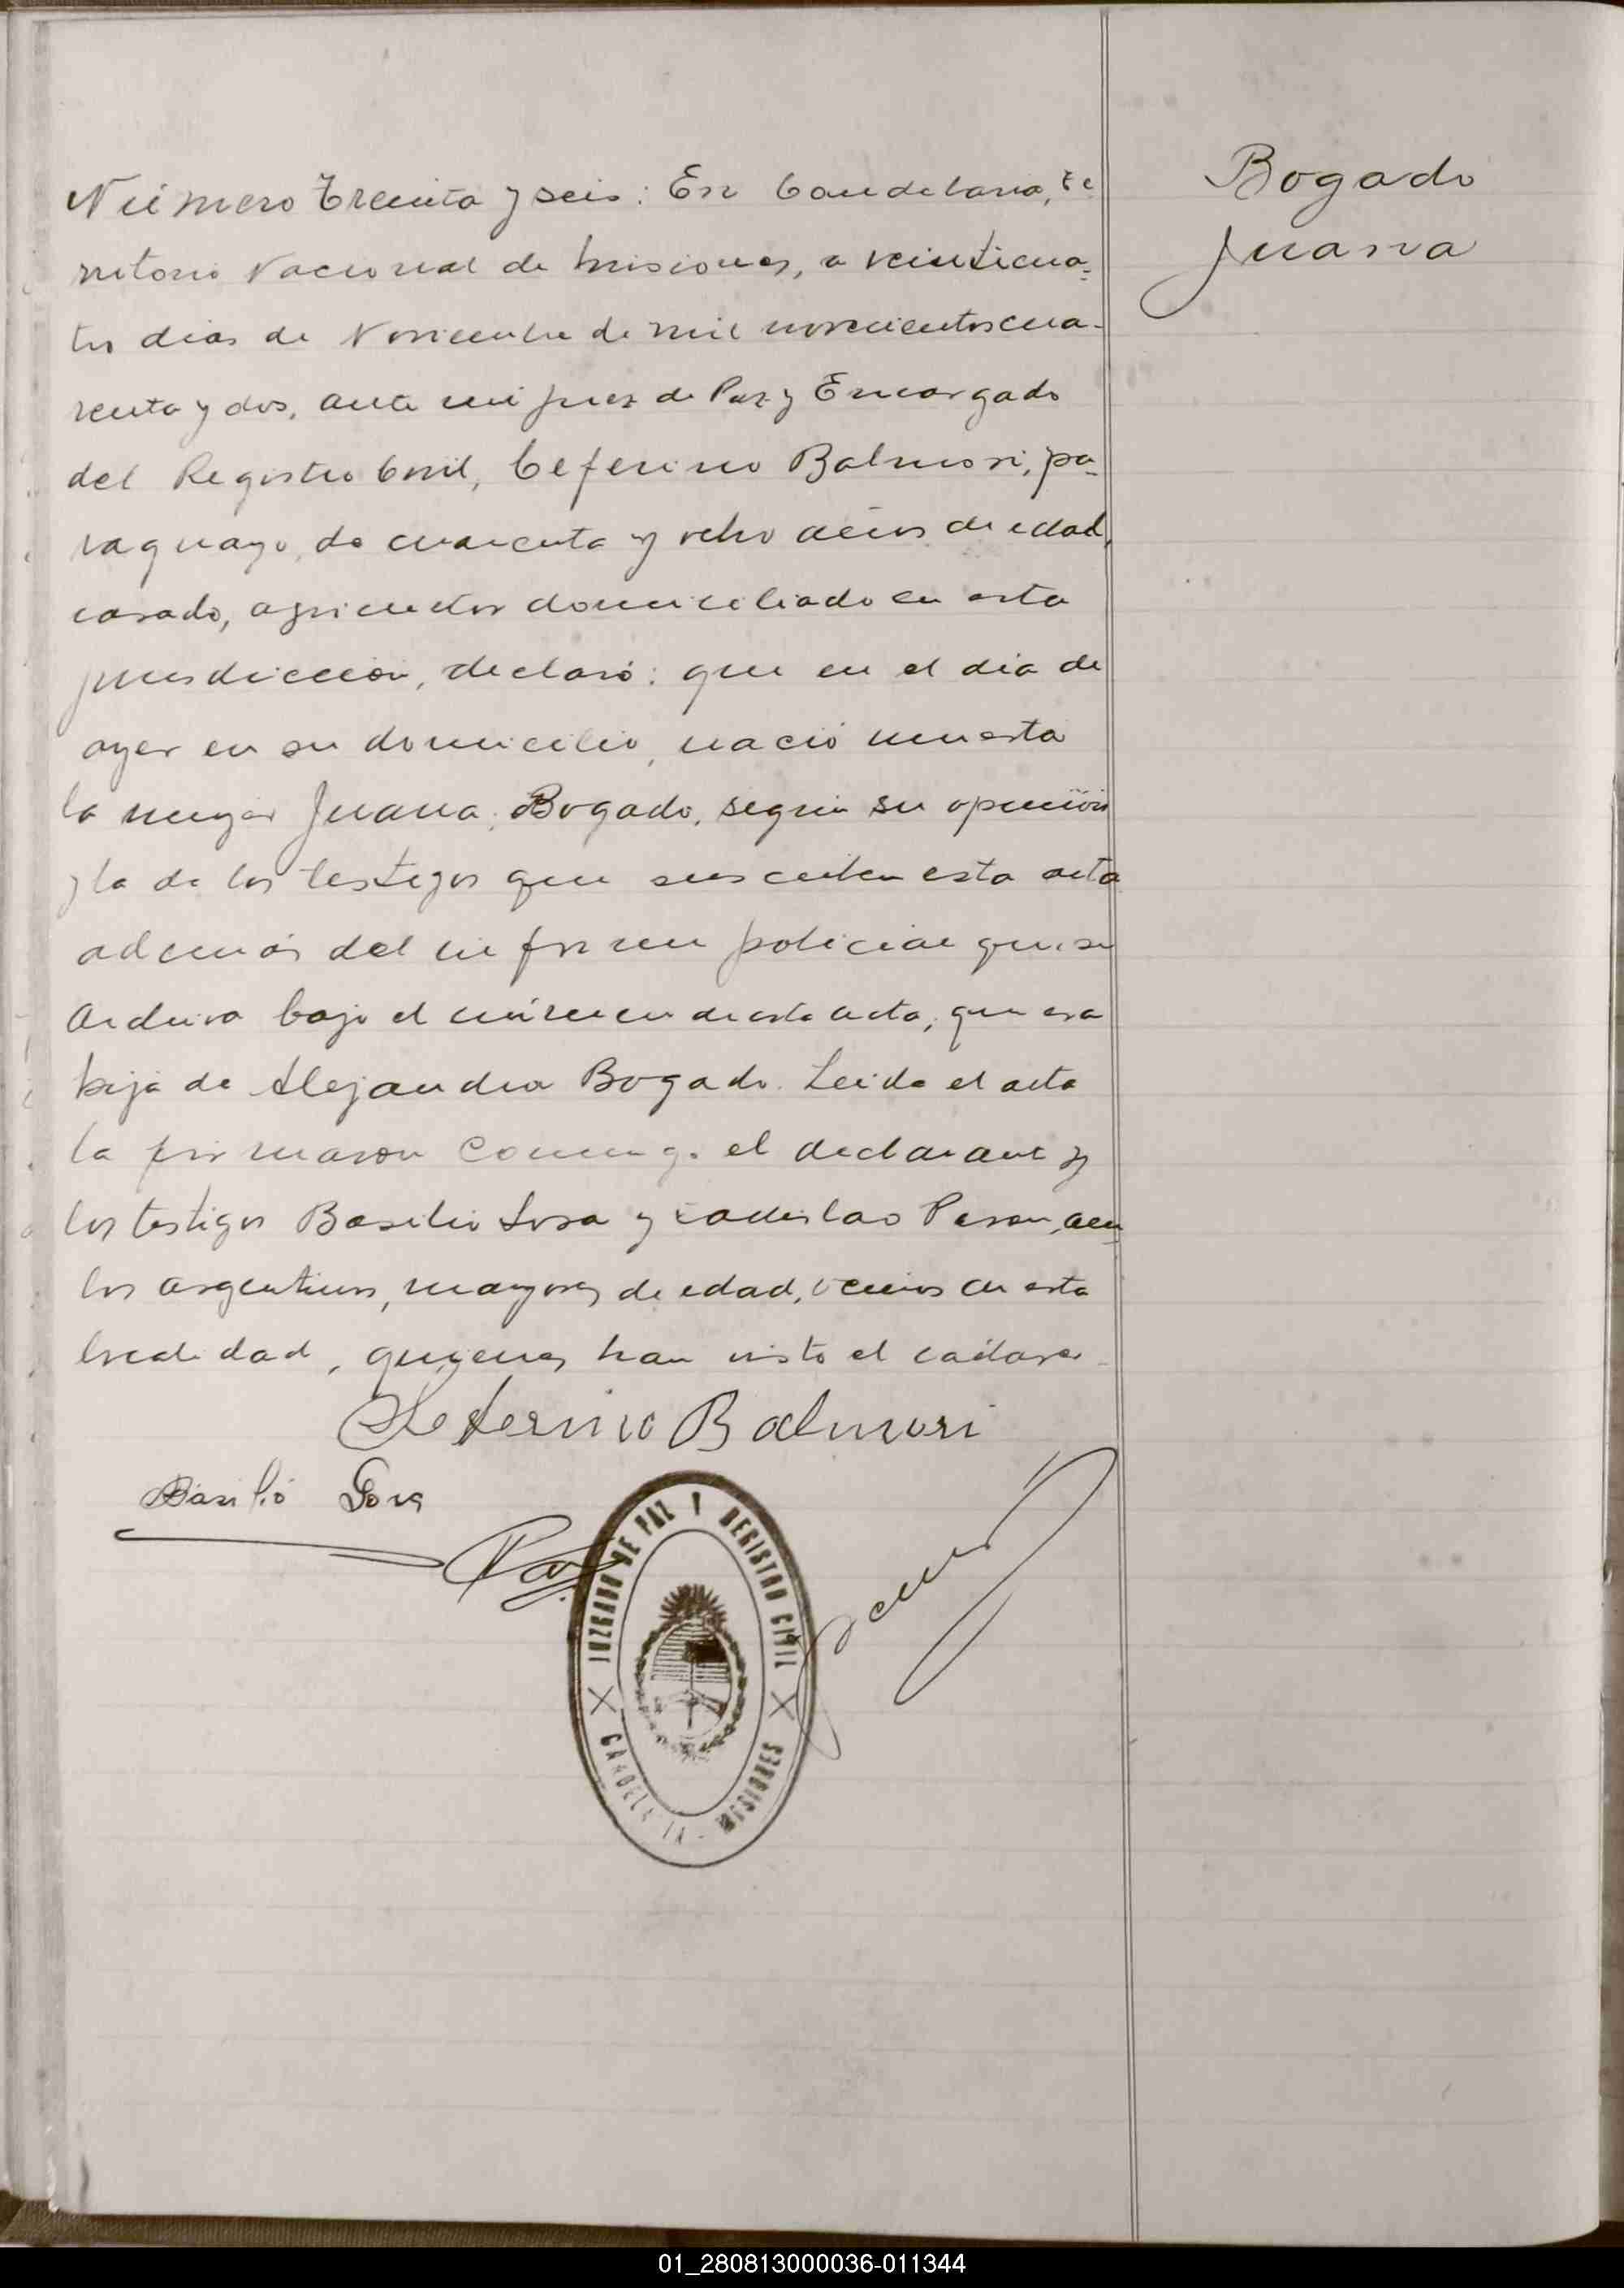 Número Treinta y seis: En Candelaria, Te
rritorio Nacional de Misiones, a veinticua-
tro dias de Noviembre de mil novecientos cua-
renta y dos, ante mi juez de Paz y Encargado
del Registro Civil, Ceferino Balmori, pa-
raguayo, de cuarenta y ocho años de edad,
casado, agricultor domiciliado en esta
jurisdiccion, declaró: que en el dia de
ayer en su domicilio, nació muerta
la mujer Juana Bogado, según su opinión
y la de los testigos que suscriben esta acta
además del informe policial que se
archiva bajo el número de esta acta, que era
hija de Alejandra Bogado. Leida el acta
la firmaron conmigo el declarante y
los testigos Basilio Sosa y Ladislao Peron, am-
bos argentinos, mayores de edad, vecinos de esta
localidad, quyenes han visto el cadaver.
Bogado
Juana
Seferino Balmori
Basilio Sosa
JUZGADO DE PAZ Y REGISTRO CIVIL
CANDELARIA - MISIONES
01_280813000036-011344